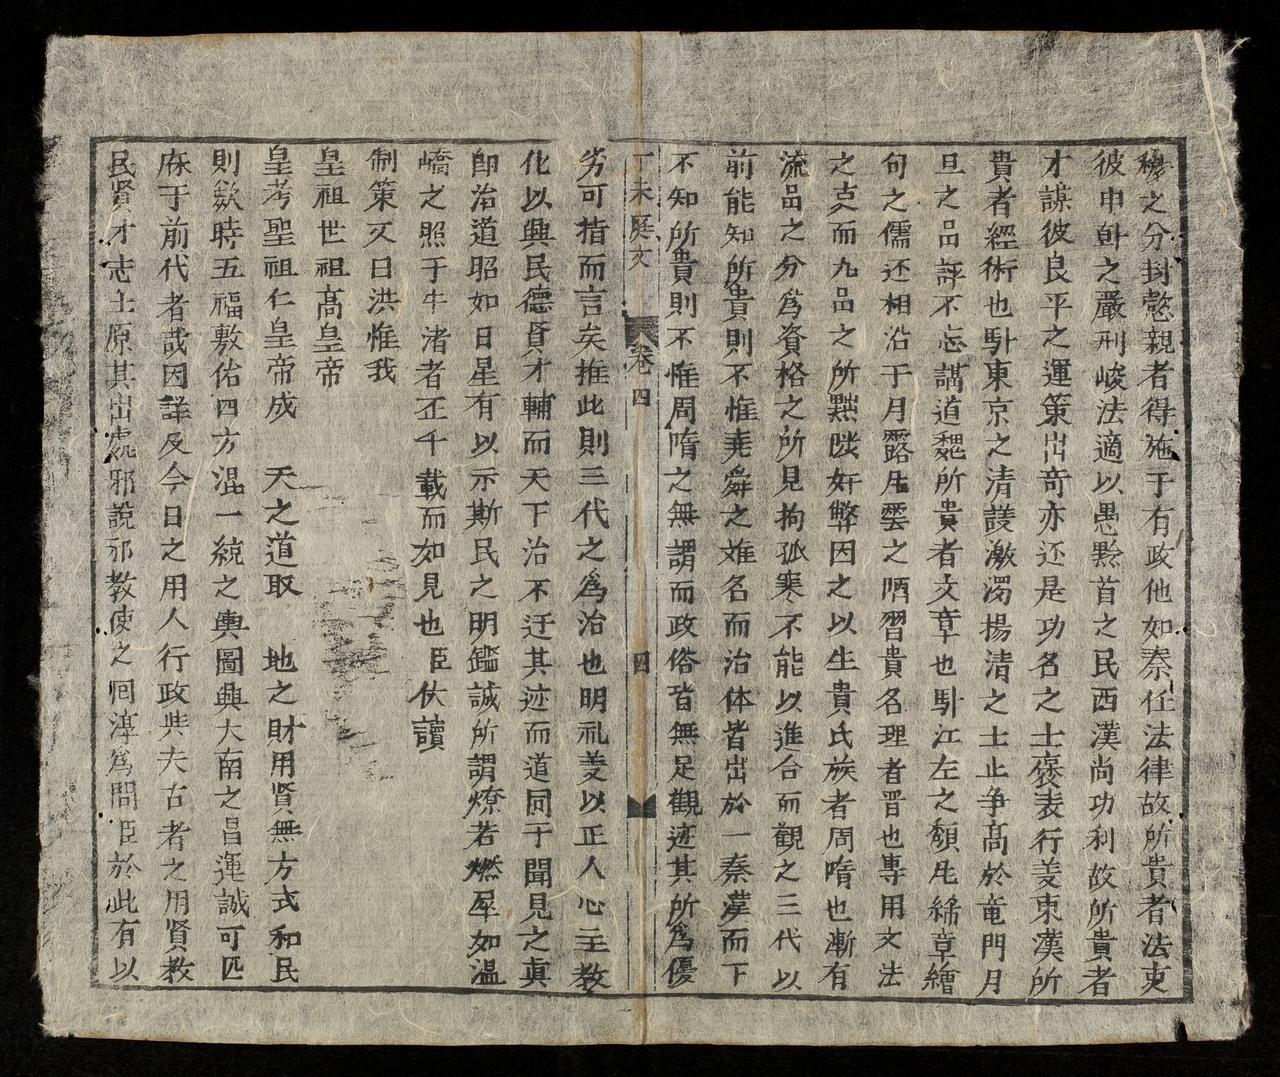 穆之分封懿親者得施于有政他如秦任法律故所貴者法吏
彼申韓之嚴刑峻法適以愚黔首之民西漢尚功利故所貴者
才謀彼良平之運策出奇亦还是功名之士褒表行義東漢所
貴者經術也馱東京之清議激濁揚清之士止争高於竜門月
旦之品評不忘講道魏所貴者文章也馱江左之頽風絺章繪
句之儒还相沿于月露風雲之陋習貴名理者晋也專用文法
之吏而九品之所弊因之以生貴氏族者周隋也漸有
流品之分爲資格之所見拘孤寒不能以進合而觀之三代以
前能知所貴則不惟堯舜之难名而治体皆出於一秦漢而下
不知所貴則不惟周隋之無謂而政俗皆無足觀迹其所為優
丁未庭文 卷四 四
劣可指而言矣推此則三代之爲治也明礼義以正人心主教
化以興民德資才輔而天下治不迂其迹而道同于聞見之真
即治道昭如日星有以示斯民之明鑑誠所謂燎若燃犀如溫
嶠之照于牛渚者在千載而如見也臣伏讀
制策又曰洪惟我
皇祖世祖高皇帝
皇考聖祖仁皇帝成 天之道取 地之財用賢無方式和民
則斂時五福敷佑四方混一統之輿圖興大南之昌運誠可匹
庥于前代者哉因詳及今日之用人行政與夫古者之用賢教
民賢才志士原其出處邪說邪教使之同淳爲問臣於此有以